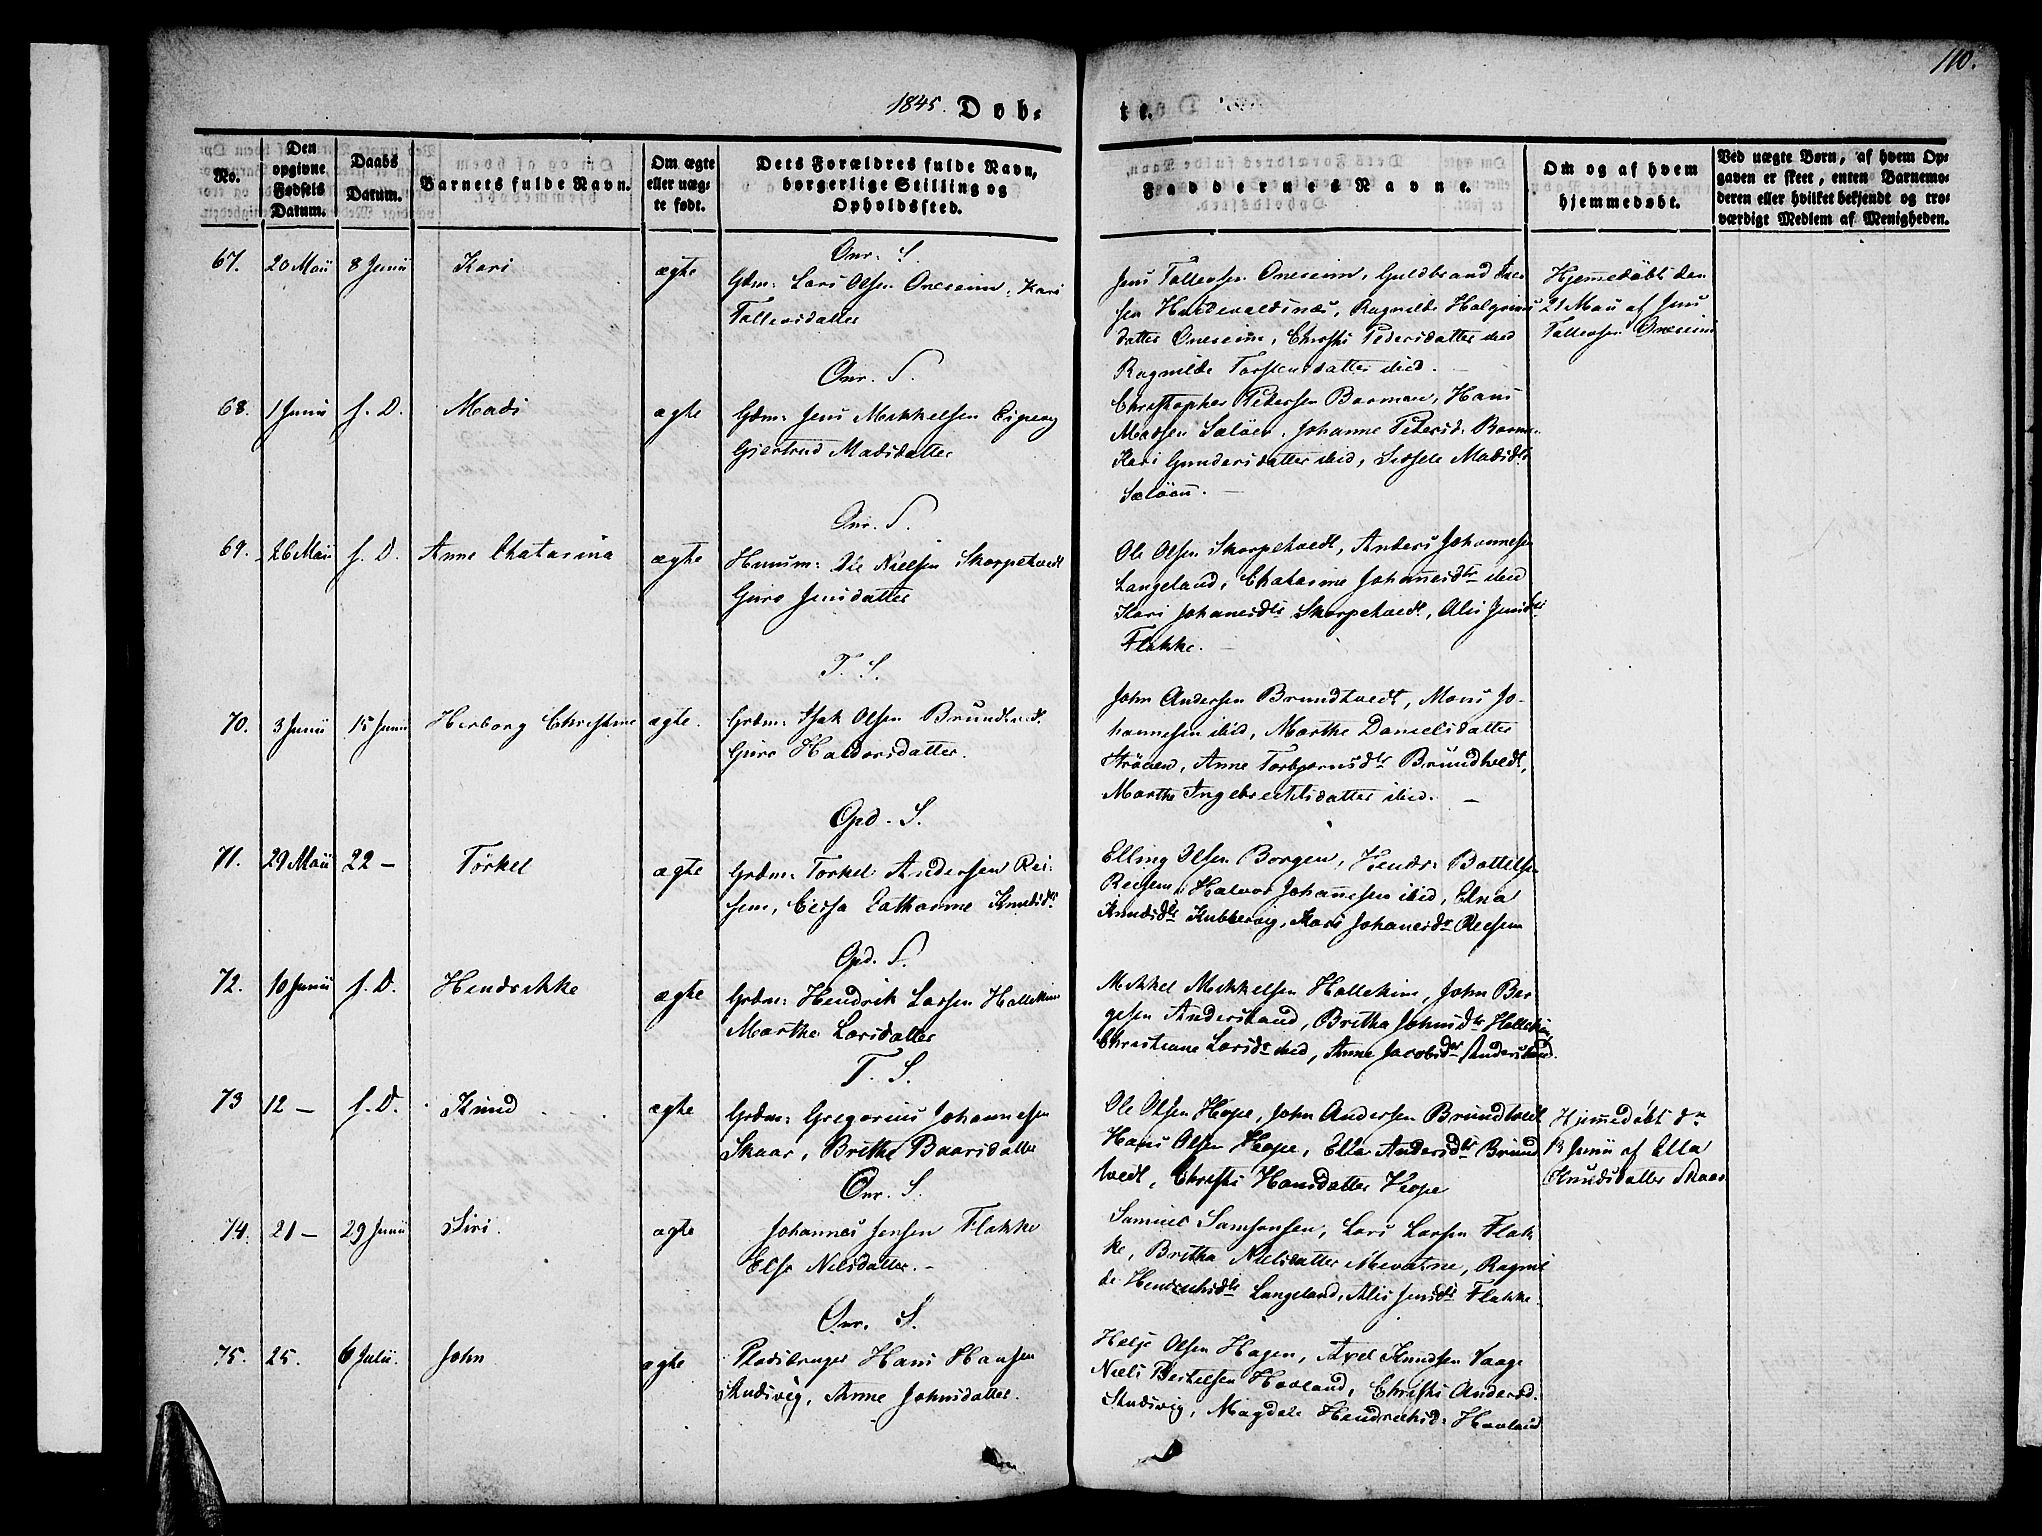 110.
1845. Døb-
te.
No.
Den opgivne Fødsels Datum.
Daabs Datum.
Barnets fulde Navn.
Om ægte eller uægte født.
Dets Forældres fulde Navn, borgerlige Stilling og Opholdssted.
Faddernes Navne.
Om og af hvem hjemmedøbt.
Ved uægte Børn, af hvem Opgaven er skeet, enten Barnemoderen eller hvilket bekjendt og troværdigt Medlem af Menigheden.
Onr. S.
67. 20 Maii 8 Junii Kari ægte
Gdm: Lars Olsen Oneseim, Kari
Tollevsdatter
Jens Tollevsen Oneseim, Guldbrand
sen Haldevaldsnæs, Ragnilde
datter Oneseim, Christi Pedersdatter ibid
Ragnilde Torstensdatter ibid.
Hjemmedøbt den
21 Maii af Jens
Tollevsen Oneseim
Onr. S.
68. 1 Junii s. D. Mads ægte
Gdm: Jens Mikkelsen
Gjertrud Madsdatter
Christopher Pedersen Barman, Hans
Madsen Seløen, Johanne Petersd.
Kari Gundersdatter ibid, Sidsele Madsdtr
Seløen.
Onr. S.
69. 26 Maii s. D. Anne Chatarina ægte
Huusm: Ole Nielsen Skorpetvedt
Guro Jensdatter
Ole Olsen Skorpetvedt, Anders Johannesen
Langeland, Chatarine Johanesdtr ibid
Kari Johanesdtr Skorpetvedt, Alis Jensdtr
Flokke.
T. S.
70. 3 Junii 15 Junii Herborg Christine ægte.
Grdm: Isak Olsen Brundtvedt.
Guro Haldorsdatter.
John Andersen Brundtvedt, Mons Jo-
hannesen ibid, Marthe Danielsdatter
Strøuen, Anne Torbjørnsdtr Brundtvedt,
Marthe Ingebrechtsdatter ibid.
Gpd. S.
71. 29 Maii 22 - Torkel ægte
Grdm: Torkel Andersen Rei-
sem, Cathanne Knudsdtr
Elling Olsen Borgen,
Reisem, Halvor Johannesen ibid, Elna
Knudsdtr Kubbervig, Kari Johanesdr Reisem
Gpd. S.
72. 10 Junii s. D. Hendrikke ægte
Grdm: Hendrik Larsen Hollekim
Marthe Larsdatter
Mikkel Mikkelsen Hollekim, John Bør-
gesen Andersland, Britha Johnsdtr Hollekim
Christiane Larsdr ibid, Anne Jacobsdtr Andersland.
T. S.
73 12 - s. D. Knud ægte
Grdm: Gregorius Johannesen
Skaar, Brithe Baarsdatter
Ole Olsen Hope, John Andersen Brundtvedt
Hans Olsen Hope, Ella Andersdtr Brund
tvedt, Christi Hansdatter Hope
Hjemmedøbt dn
13 Junii af Ella
Knudsdatter Skaar
Onr. S.
74. 21 - 29 Junii Siri. ægte
Johannes Jensen Flokke
Else Nilsdatter.
Samuel Samsonsen, Lars Larsen Flok-
ke, Britha Nielsdatter Mevatne, Ragnil
de Henrichsdtr Langeland, Alis Jensdr Flokke.
Onr. S.
75. 25. 6 Julii. John ægte
Pladsbruger Hans Hansen
Andsvig, Anne Johnsdatter.
Helje Olsen Hagen, Axel Knudsen Vaage
Niels Bertelsen Hovland, Christi Andersd.
Andsvig, Magdele Hendrichsd: Hovland